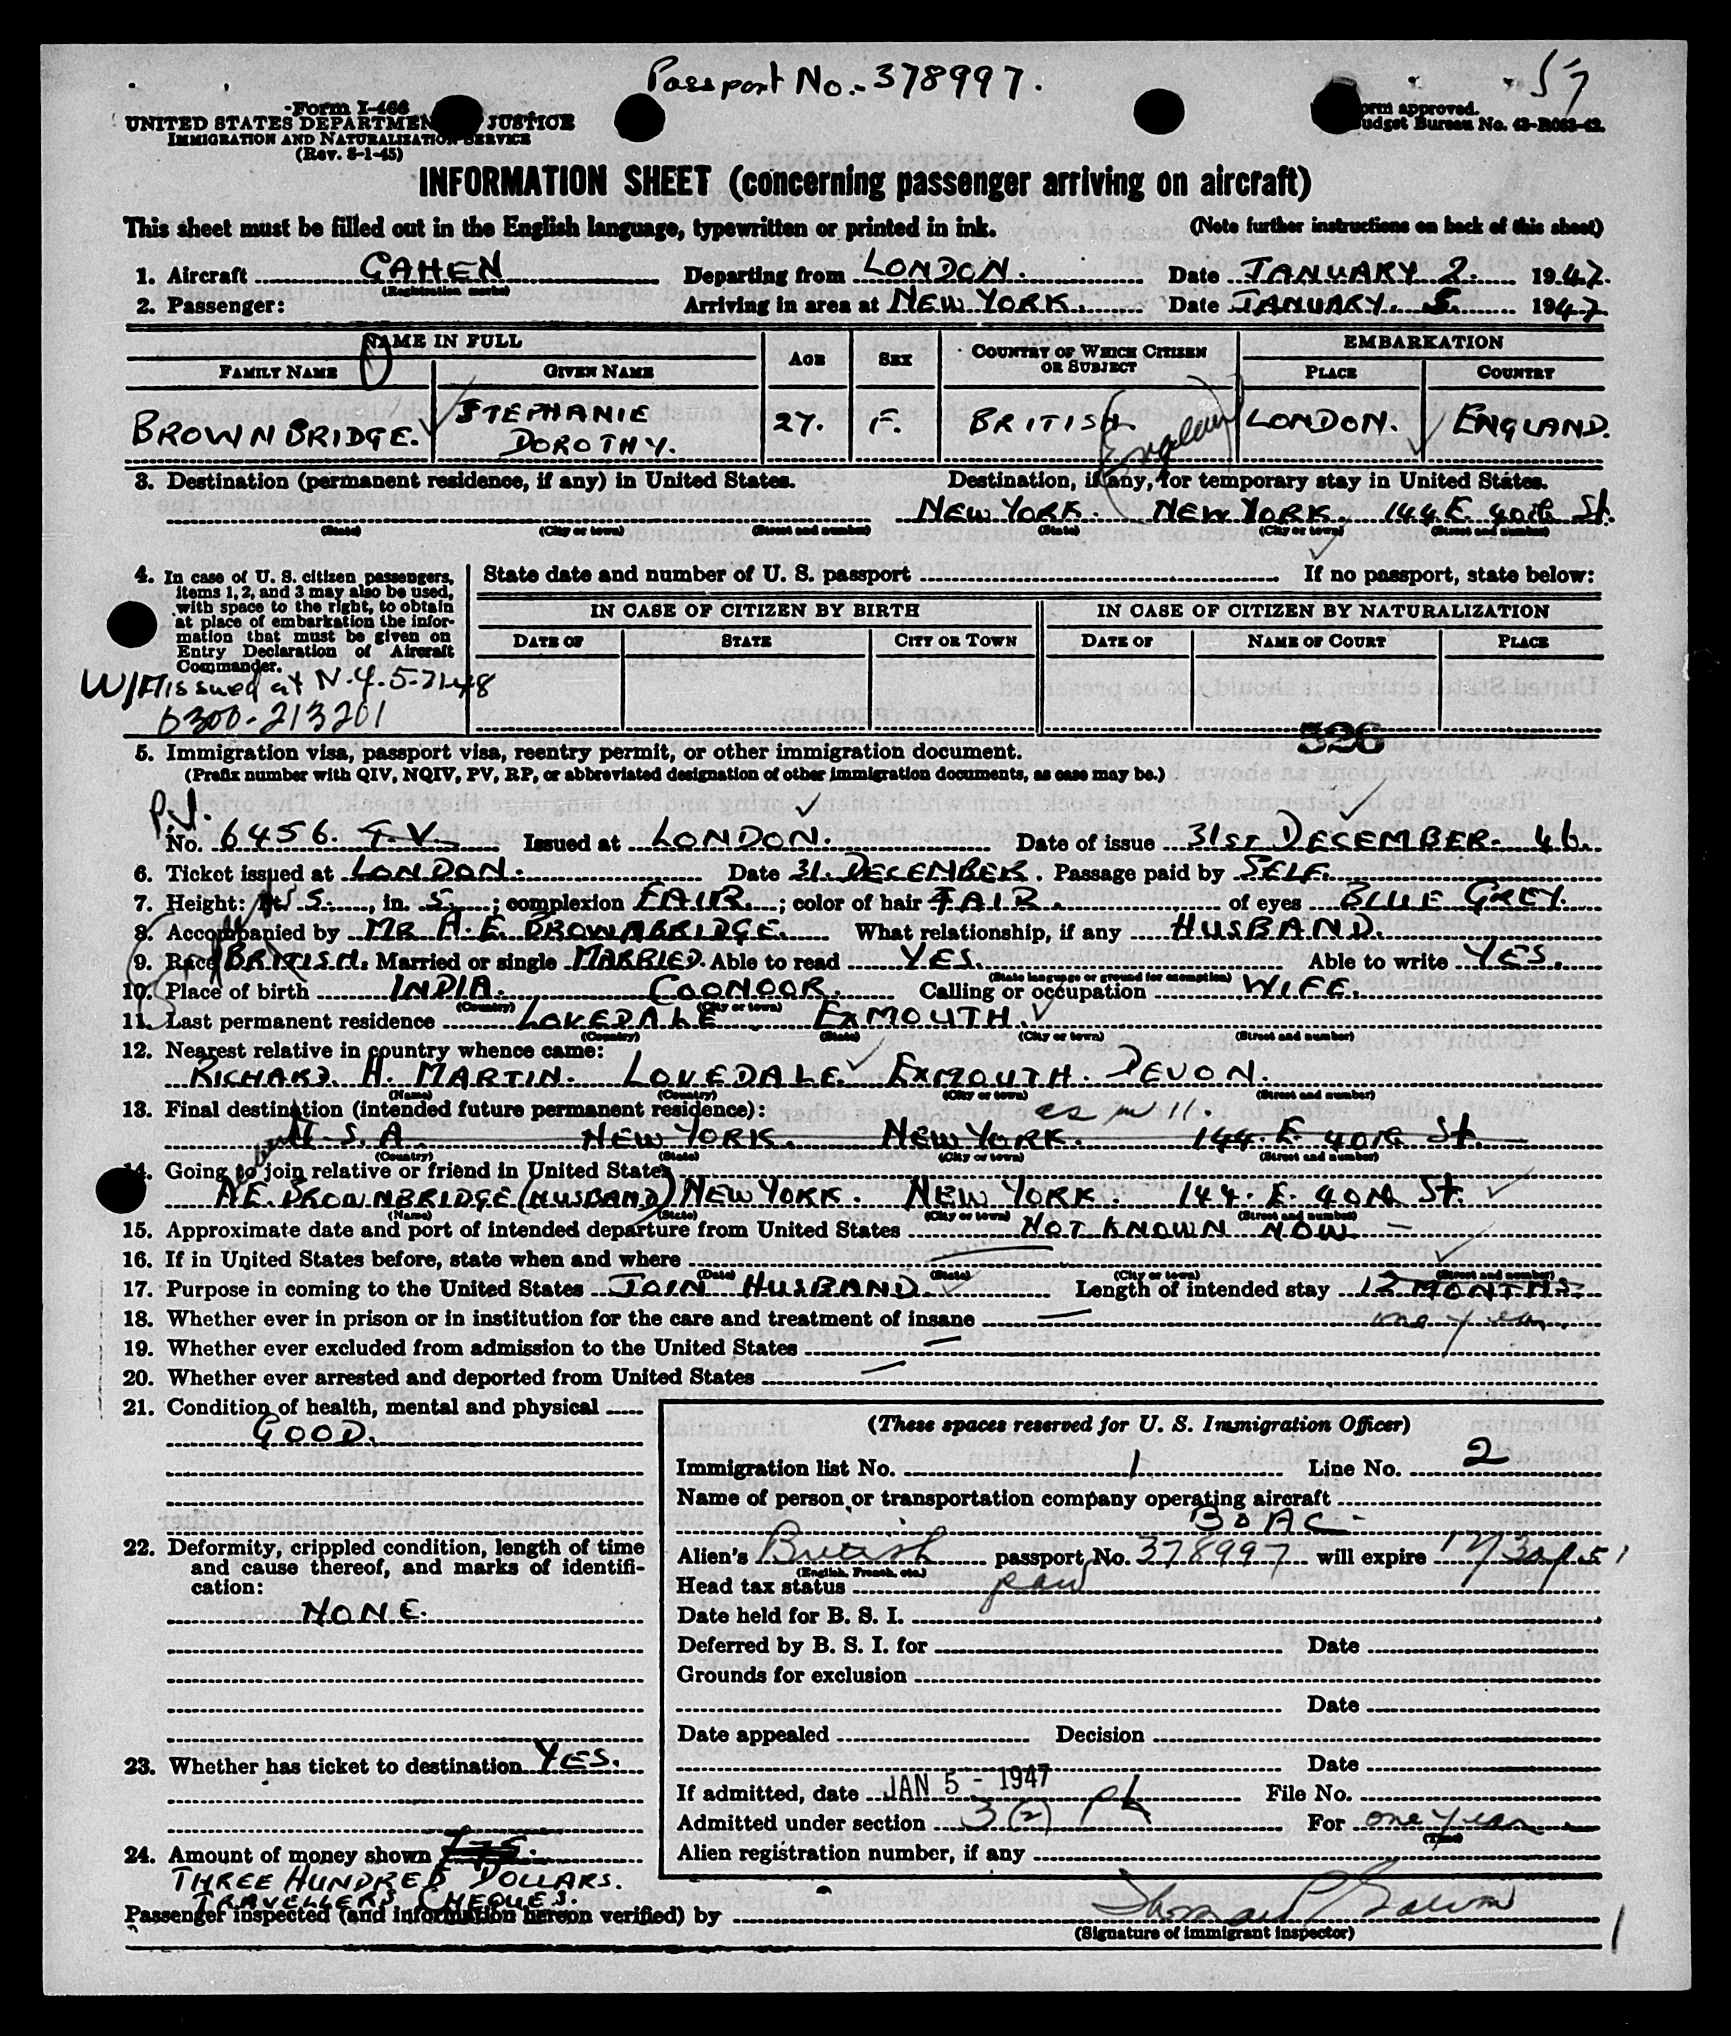 Passport No. 378997.
57
Form I-466
UNITED STATES DEPARTMENT JUSTICE
IMMIGRATION AND NATURALIZATION SERVICE
(Rev. 8-1-45)
orm approved.
udget Bureau No. 43-R063-42.
INFORMATION SHEET (concerning passenger arriving on aircraft)
This sheet must be filled out in the English language, typewritten or printed in ink. (Note further instructions on back of this sheet)
1. Aircraft GAHEN Departing from LONDON. Date JANUARY 2. 1947.
(Registration marks)
2. Passenger: Arriving in area at NEW YORK. Date JANUARY. 5. 1947.
NAME IN FULL AGE SEX COUNTRY OF WHICH CITIZEN OR SUBJECT EMBARKATION
FAMILY NAME GIVEN NAME PLACE COUNTRY
BROWNBRIDGE. STEPHANIE DOROTHY. 27. F. BRITISH. (England) LONDON. ENGLAND.
3. Destination (permanent residence, if any) in United States. Destination, if any, for temporary stay in United States.
NEW YORK. NEW YORK. 144 E. 40th St.
(State) (City or town) (Street and number) (State) (City or town) (Street and number)
4. In case of U. S. citizen passengers, items 1, 2, and 3 may also be used, with space to the right, to obtain at place of embarkation the information that must be given on Entry Declaration of Aircraft Commander.
State date and number of U. S. passport If no passport, state below:
IN CASE OF CITIZEN BY BIRTH IN CASE OF CITIZEN BY NATURALIZATION
DATE OF STATE CITY OR TOWN DATE OF NAME OF COURT PLACE
issued at N.Y. 5-21-48
0300-213201
526
5. Immigration visa, passport visa, reentry permit, or other immigration document.
(Prefix number with QIV, NQIV, PV, RP, or abbreviated designation of other immigration documents, as case may be.)
P.V.
No. 6456 T.V. Issued at LONDON. Date of issue 31ST DECEMBER. 46.
6. Ticket issued at LONDON. Date 31. DECEMBER. Passage paid by SELF.
7. Height: ft. 5., in. 5. ; complexion FAIR. ; color of hair FAIR. of eyes BLUE GREY.
8. Accompanied by MR A.E. BROWNBRIDGE. What relationship, if any HUSBAND.
9. Race BRITISH. Married or single MARRIED. Able to read YES. Able to write YES.
(State language or ground for exemption)
10. Place of birth INDIA. COONOOR. Calling or occupation WIFE.
(Country) (City or town)
11. Last permanent residence LOVEDALE EXMOUTH.
(Country) (State) (City or town) (Street and number)
12. Nearest relative in country whence came:
RICHARD. H. MARTIN. LOVEDALE EXMOUTH. DEVON.
(Name) (Country) (City or town) (Street and number)
13. Final destination (intended future permanent residence): as in 11.
U.S.A. NEW YORK. NEW YORK. 144. E. 40th St.
(Country) (State) (City or town) (Street and number)
14. Going to join relative or friend in United States
A.E. BROWNBRIDGE (HUSBAND) NEW YORK. NEW YORK. 144. E. 40th St.
(Name) (State) (City or town) (Street and number)
15. Approximate date and port of intended departure from United States NOT KNOWN NOW
16. If in United States before, state when and where
(Date) (State) (City or town) (Street and number)
17. Purpose in coming to the United States JOIN HUSBAND. Length of intended stay 12 MONTHS.
18. Whether ever in prison or in institution for the care and treatment of insane one year
19. Whether ever excluded from admission to the United States
20. Whether ever arrested and deported from United States
21. Condition of health, mental and physical
GOOD.
22. Deformity, crippled condition, length of time and cause thereof, and marks of identification:
NONE.
23. Whether has ticket to destination YES.
24. Amount of money shown
THREE HUNDRED DOLLARS.
TRAVELLERS CHEQUES.
(These spaces reserved for U. S. Immigration Officer)
Immigration list No. 1 Line No. 2
Name of person or transportation company operating aircraft
BOAC
Alien's British passport No. 378997 will expire
(English, French, etc.)
Head tax status
Date held for B. S. I.
Deferred by B. S. I. for Date
Grounds for exclusion
Date
Date appealed Decision
Date
If admitted, date JAN 5 - 1947 File No.
Admitted under section 3(2) For one year
(Time)
Alien registration number, if any
Passenger inspected (and information hereon verified) by
(Signature of immigrant inspector)